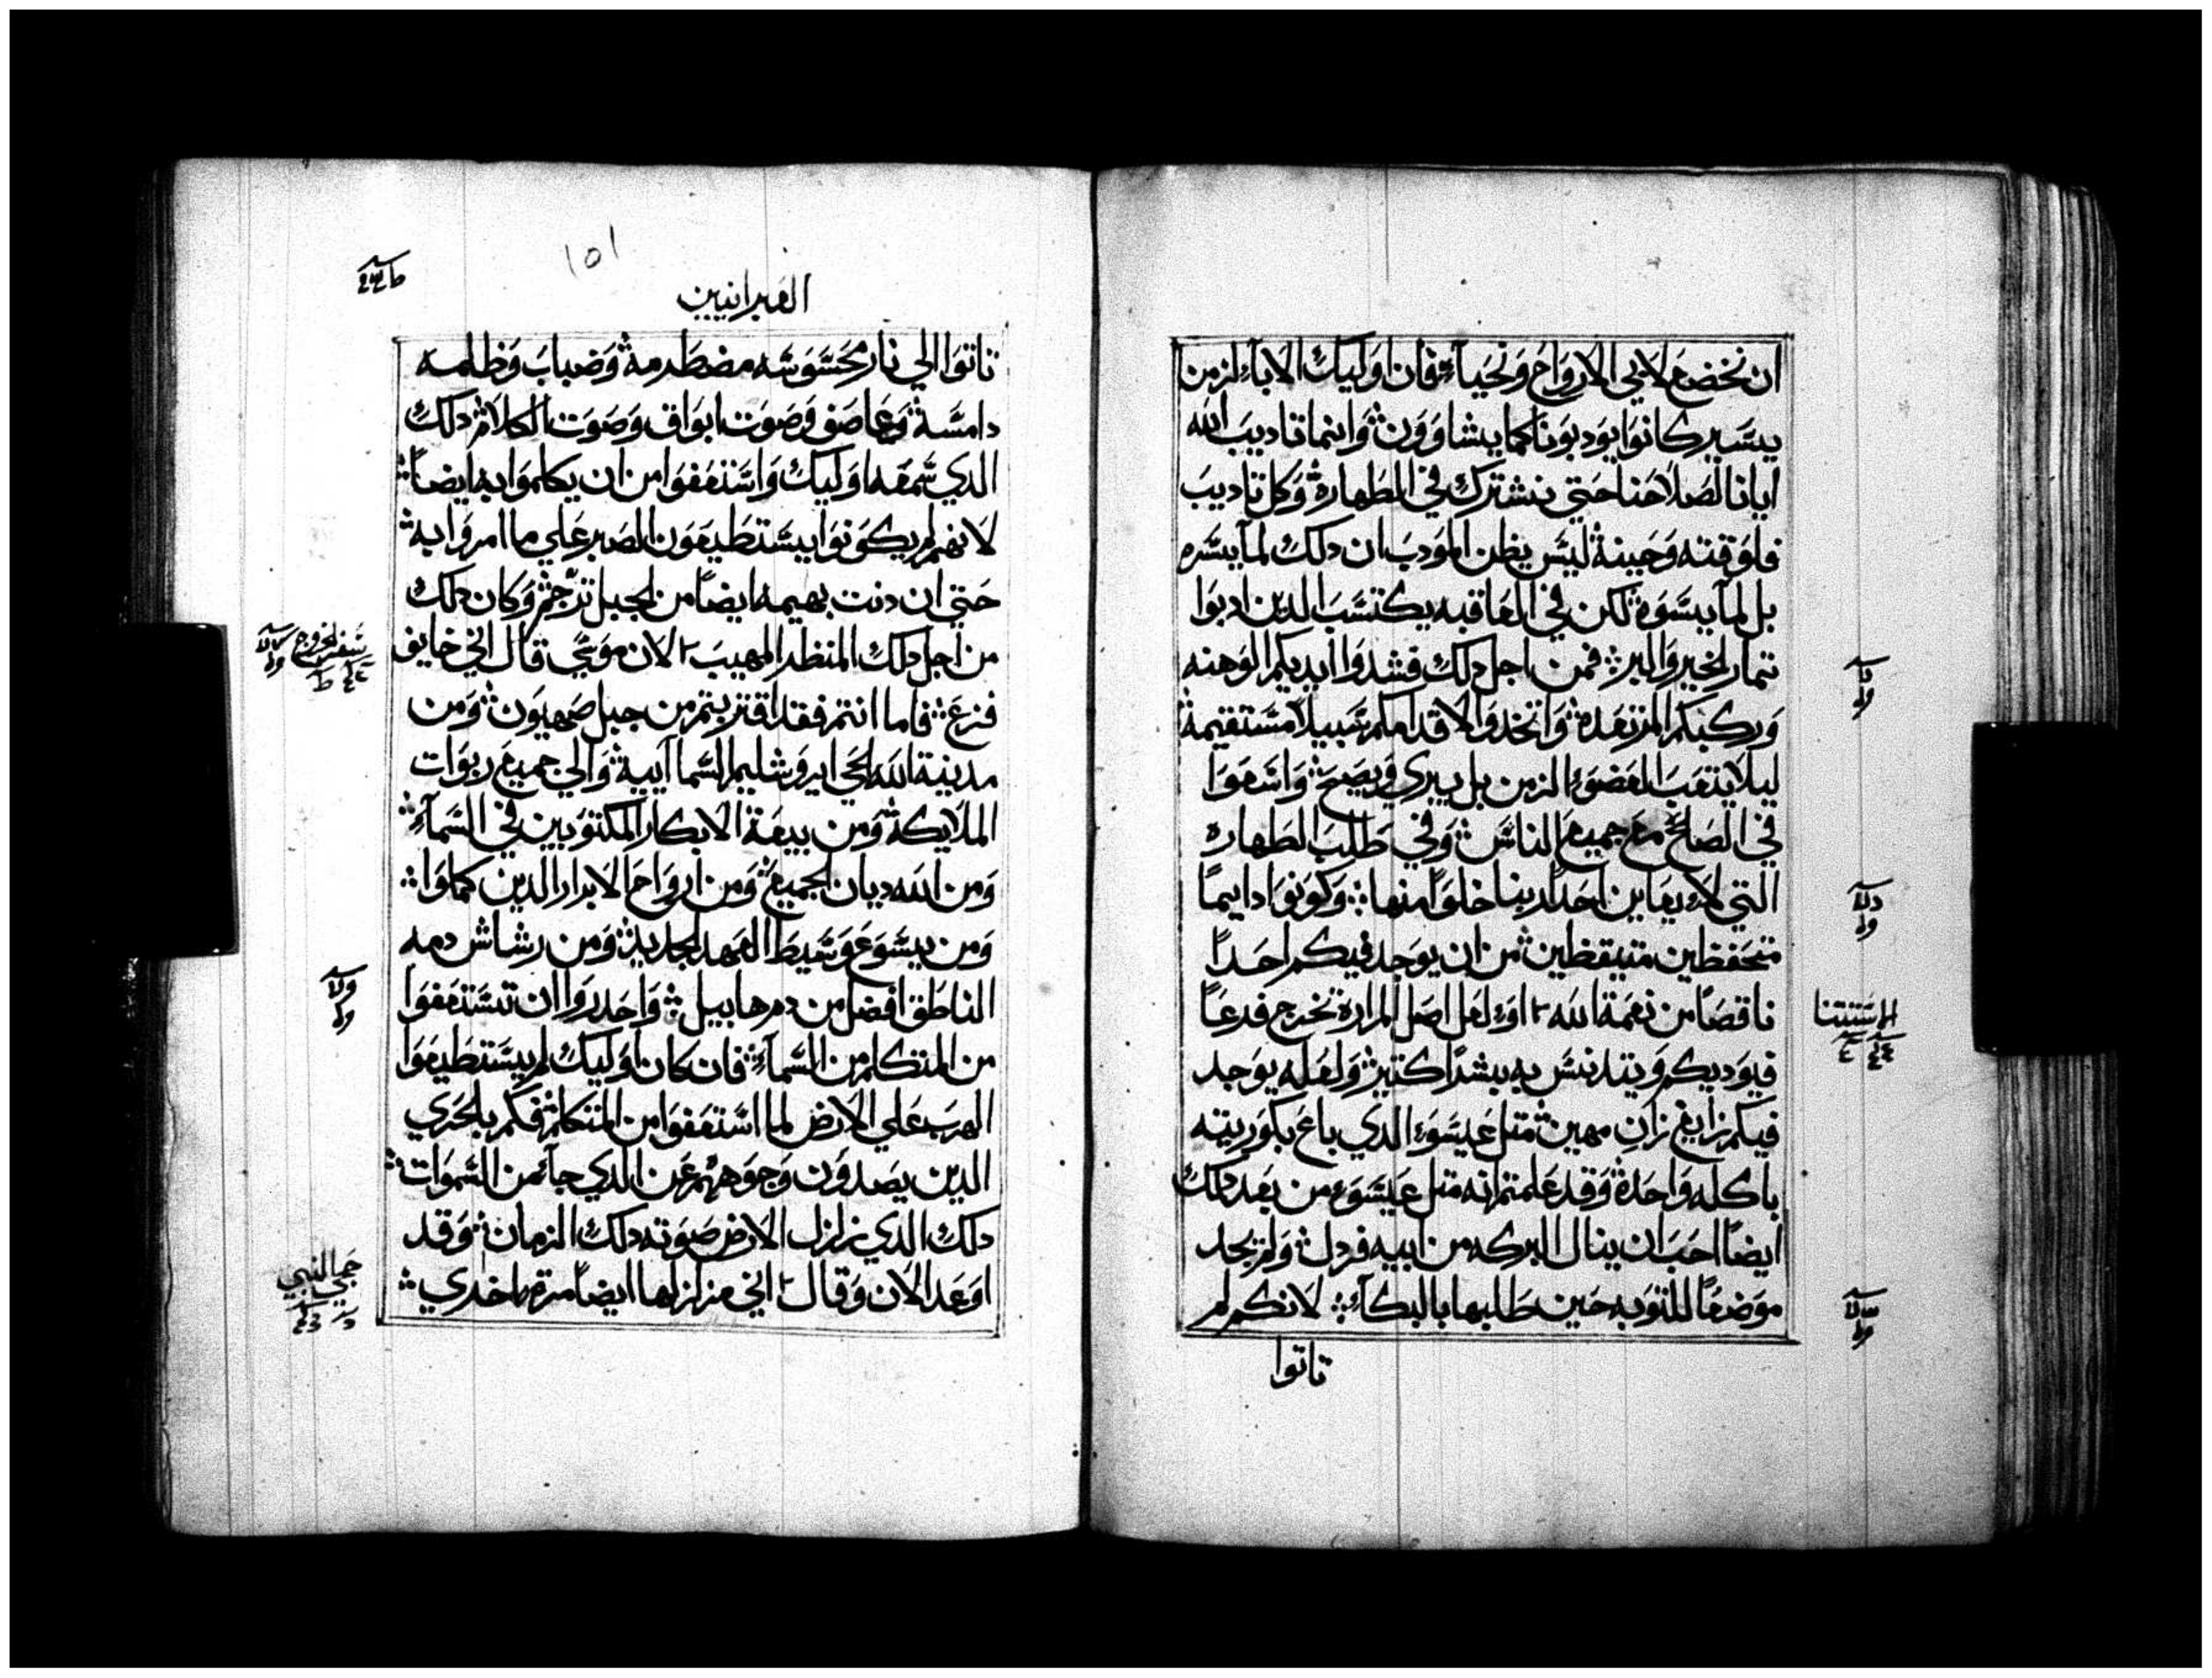 ان نخضع لابي الارواح ونحيا فان اوليك الابا لزمن
يسير كانوا يودبونا كما يشاوون وانما تاديب الله
ايانا لصلاحنا حتي نشترك في الطهارة وكل تاديب
فلوقته وحينه ليس يظن المودب ان دلك لما يسره
بل لما يسوه لكن في العاقبه يكتسب الدين ادبوا
تمار الخير والبر فمن اجل دلك فشدوا ايديكم الوهنه
وركبكم المرتعده واتخدوا لاقدامكم سبيلا مستقيمة
ليلا يتعب العضو الزمن بل يبري ويصح واسعوا
في الصلح مع جميع الناس وفي طلب الطهاره
التي لا يعاين احدا ربنا خلوا منها وكونوا دايما
متحفظين متيقظين من ان يوجد فيكم احدا
ناقصا من نعمة الله او لعل اصل المرارة تخرج فرعا
فيوديكم ويتدنس به بشرا كتير ولعله يوجد
فيكم زايغ زان مهين متل عيسو الدي باع بكوريته
باكله واحدة وقد علمتم انه متل عيسو من بعد دلك
ايضا احب ان ينال البركه من ابيه فردل ولم يجد
موضعا للتوبه حين طلبها بالبكا لانكم لم
تاتوا
الاستتنا
١٥١
العبرانيين
تاتوا الي نار محسوسه مضطرمة وضباب وظلمه
دامسة وعاصف وصوت ابواق وصوت الكلام دلك
الدي سمعه اوليك واستعفوا من ان يكلموا به ايضا
لانهم لم يكونوا يستطيعون الصبر علي ما امروا به
حتي ان دنت بهيمه ايضا من الجبل ترجم وكان دلك
من اجل دلك المنظر المهيب لان موسي قال اني خايف
فزع فاما انتم فقد اقتربتم من جبل صهيون ومن
مدينة الله الحي ايروشليم السماايية والي جميع ربوات
الملايكة ومن بيعة الابكار المكتوبين في السما
ومن الله ديان الجميع ومن ارواح الابرار الدين كملوا
ومن يسوع وسيط العهد الجديد ومن رشاش دمه
الناطق افضل من دم هابيل واحدروا ان تستعفوا
من المتكلم من السما فان كان اوليك لم يستطيعوا
الهرب علي الارض لما استعفوا من المتكلم فكم بالحري
الدين يصدون وجوههم عن الدي جا من السموات
دلك الدي زلزل الارض صوته دلك الزمان وقد
اوعد الان وقال اني مزلزلها ايضا مرة اخري
سفر الخروج
حجي النبي